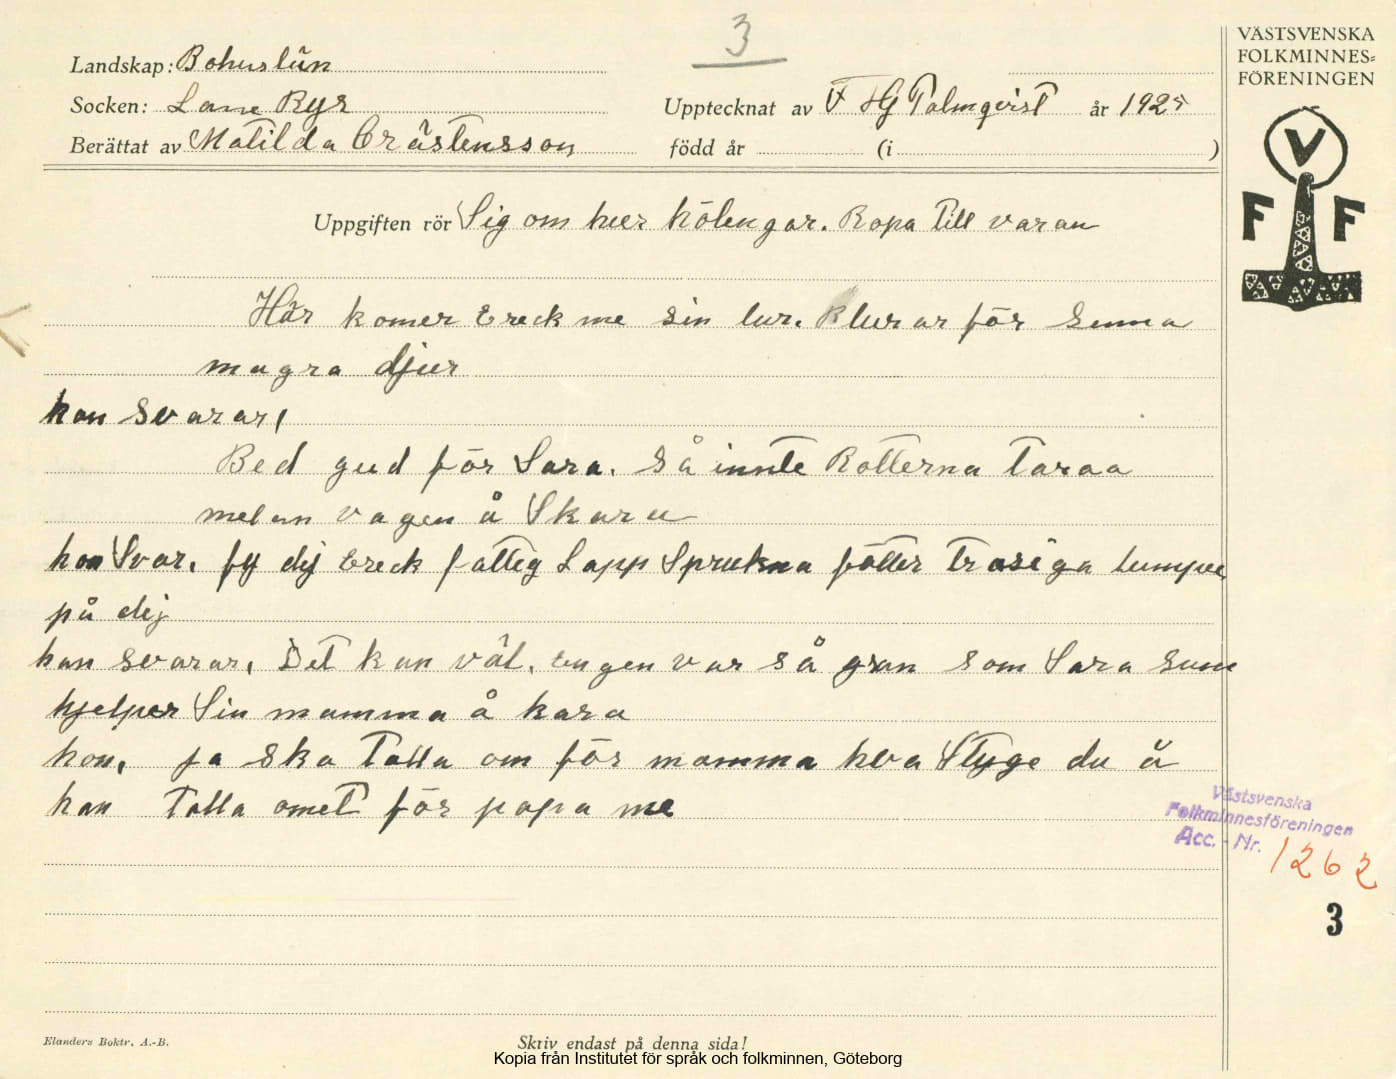 3
VÄSTSVENSKA
FOLKMINNES=
FÖRENINGEN
Landskap: Bohuslän
Socken: Lane Ryr
Upptecknat av F HG Palmqvist år 1925
Berättat av Matilda Crästensson
född år (i )
V
F F
Uppgiften rör Sig om hur kölingar. Ropa Till varan
Här komer Ereck me sin lur. Blurar för Senna
magra djur
hon svarar,
Bed gud för Sara. så innte Rotterna Taraa
melan vagen å Skara
hon Svar. fy dij Ereck fattig Lapp Sprukna fötter Trasiga lumper
på dij
han svarar. Det kan väl. Engen var så gran som Sara Sum
hjelper Sin mamma å kara
hon, ja ska Talla om för mamma hva Styge du ä
han Talla omeT för papa me
Västsvenska
Folkminnesföreningen
Acc. - Nr. 1262
3
Elanders Boktr. A.-B.
Skriv endast på denna sida!
Kopia från Institutet för språk och folkminnen, Göteborg